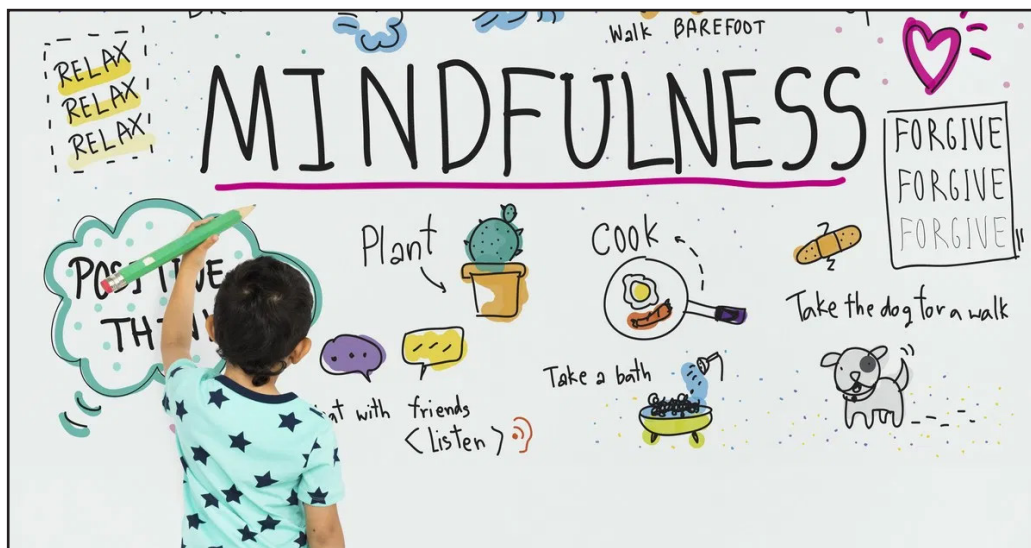 Walk BAREFOOT
RELAX
RELAX
RELAX
MINDFULNESS
FORGIVE
FORGIVE
FORGIVE
POSITIVE
Plant
COOK
Take the dog for a walk
Take a bath
with friends
<Listen>